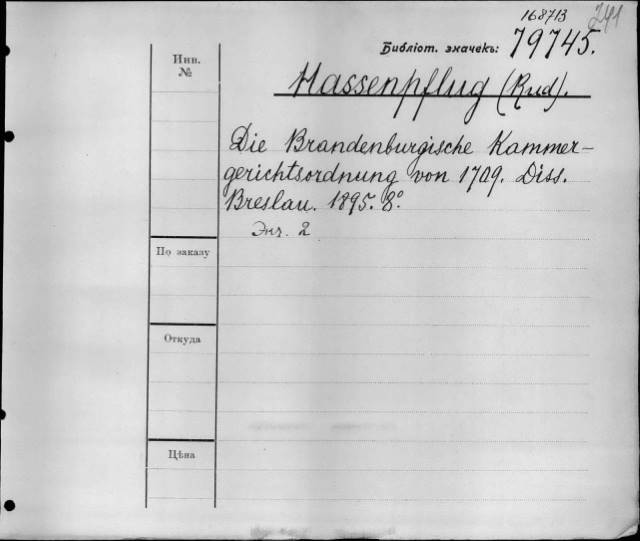 168713
241
Библіот. значекъ: 79745.
Инв.
№
Hassenpflug (Rud).
Die Brandenburgische Kammer-
gerichtsordnung von 1709. Diss.
Breslau. 1895. 8°.
Экз. 2
По заказу
Откуда
Цѣна